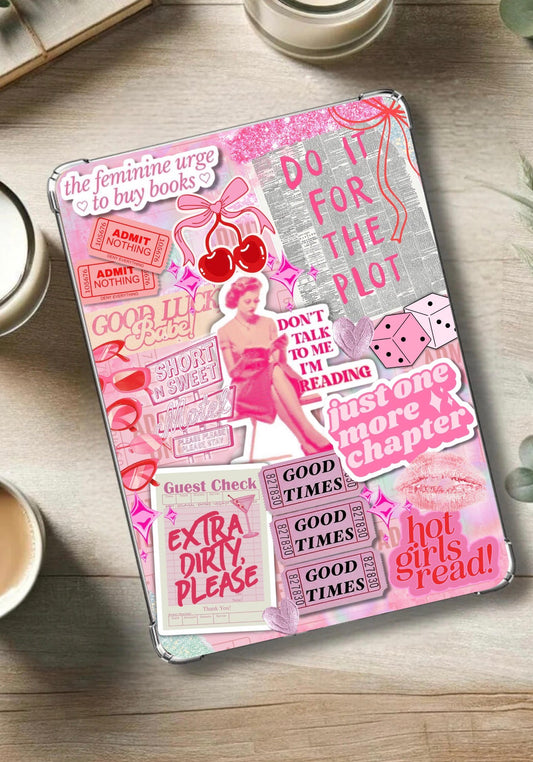 the feminine urge
to buy books
DO IT
FOR
THE
PLOT
ADMIT
NOTHING
DENY EVERYTHING
105676
105676
ADMIT
NOTHING
DENY EVERYTHING
105676
GOOD LUCK
Babe!
DON'T
TALK
TO ME
I'M
READING
SHORT
N' SWEET
Motel
PLEASE PLEASE
PLEASE STAY!
just one
more
chapter
Guest Check
EXTRA
DIRTY,
PLEASE
Thank You!
GOOD
TIMES
827830
827830
GOOD
TIMES
827830
827830
GOOD
TIMES
827830
827830
hot
girls
read!